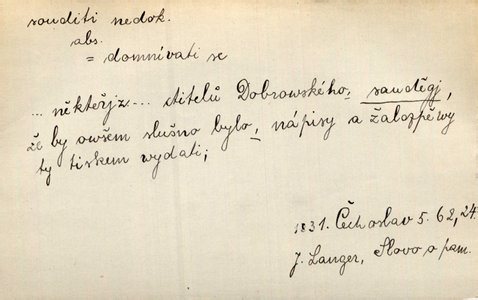 souditi nedok.
abs.
= domnívati se
... někteřj z ... ctitelů Dobrowského, sauděgj,
že by owšem slušno bylo, nápisy a žalozpěwy
ty tiskem wydati;
1831. Čechoslav 5. 62, 24.
J. Langer, Slovo o pam.